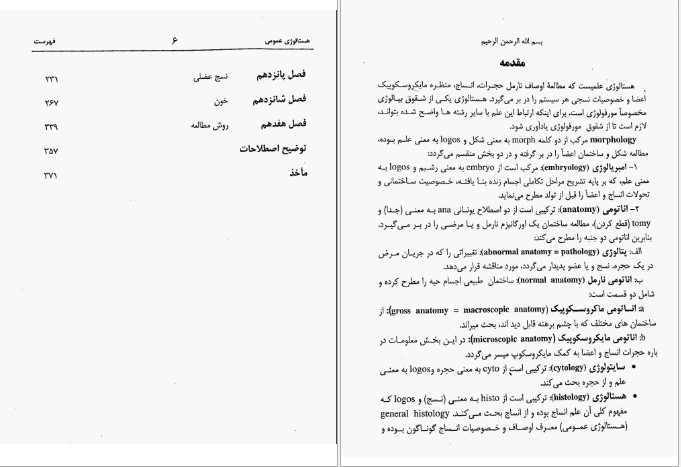 هستالوژی عمومی ۶ فهرست
فصل پانزدهم نسج عضلی ۲۳۱
فصل شانزدهم خون ۲۶۷
فصل هفدهم روش مطالعه ۳۳۹
توضیح اصطلاحات ۳۵۷
مأخذ ۳۷۱
بسم الله الرحمن الرحیم
مقدمه
هستالوژی علمیست که مطالعهٔ اوصاف نارمل حجرات، انساج، منظره مایکروسکوپیک
اعضا و خصوصیات نسجی هر سیستم را در بر می‌گیرد. هستالوژی یکی از شقوق بیالوژی
مخصوصاً مورفولوژی است، برای اینکه ارتباط این علم با سایر رشته ها واضح شده بتواند،
لازم است تا از شقوق مورفولوژی یادآوری شود.
morphology مرکب از دو کلمه morph به معنی شکل و logos به معنی علم بوده،
مطالعه شکل و ساختمان اعضأ را در بر گرفته و در دو بخش منقسم می‌گردد:
۱- امبریالوژی (embryology): مرکب است از embryo به معنی رشیم و logos به
معنی علم، که بر پایه تشریح مراحل تکاملی اجسام زنده بنا یافته، خصوصیت ساختمانی و
تحولات انساج و اعضأ را قبل از تولد مطرح می‌نماید.
۲- اناتومی (anatomy): ترکیبی است از دو اصطلاح یونانی ana به معنی (جدا) و
tomy (قطع کردن)، مطالعه ساختمان یک اورگانیزم نارمل و یا مرضی را در بر می‌گیرد.
بنابرین اناتومی دو جنبه را مطرح می‌کند:
الف: پتالوژی (abnormal anatomy = pathology): تغییراتی را که در جریان مرض
در یک حجره، نسج و یا عضو پدیدار می‌گردد، مورد مناقشه قرار می‌دهد.
ب: اناتومی نارمل (normal anatomy): ساختمان طبیعی اجسام حیه را مطرح کرده و
شامل دو قسمت است:
a: اناتومی ماکروسکوپیک (gross anatomy = macroscopic anatomy): از
ساختمان های مختلف که با چشم برهنه قابل دید اند، بحث میراند.
b: اناتومی مایکروسکوپیک (microscopic anatomy): در این بخش معلومات در
باره حجرات انساج و اعضا به کمک مایکروسکوپ میسر می‌گردد.
• سایتولوژی (cytology): ترکیبی است از cyto به معنی حجره و logos به معنی
علم و از حجره بحث می‌کند.
• هستالوژی (histology): ترکیبی است از histo به معنی (نسج) و logos که
مفهوم کلی آن علم انساج بوده و از انساج بحث می‌کند. general histology
(هستالوژی عمومی) معرف اوصاف و خصوصیات انساج گوناگون بوده و